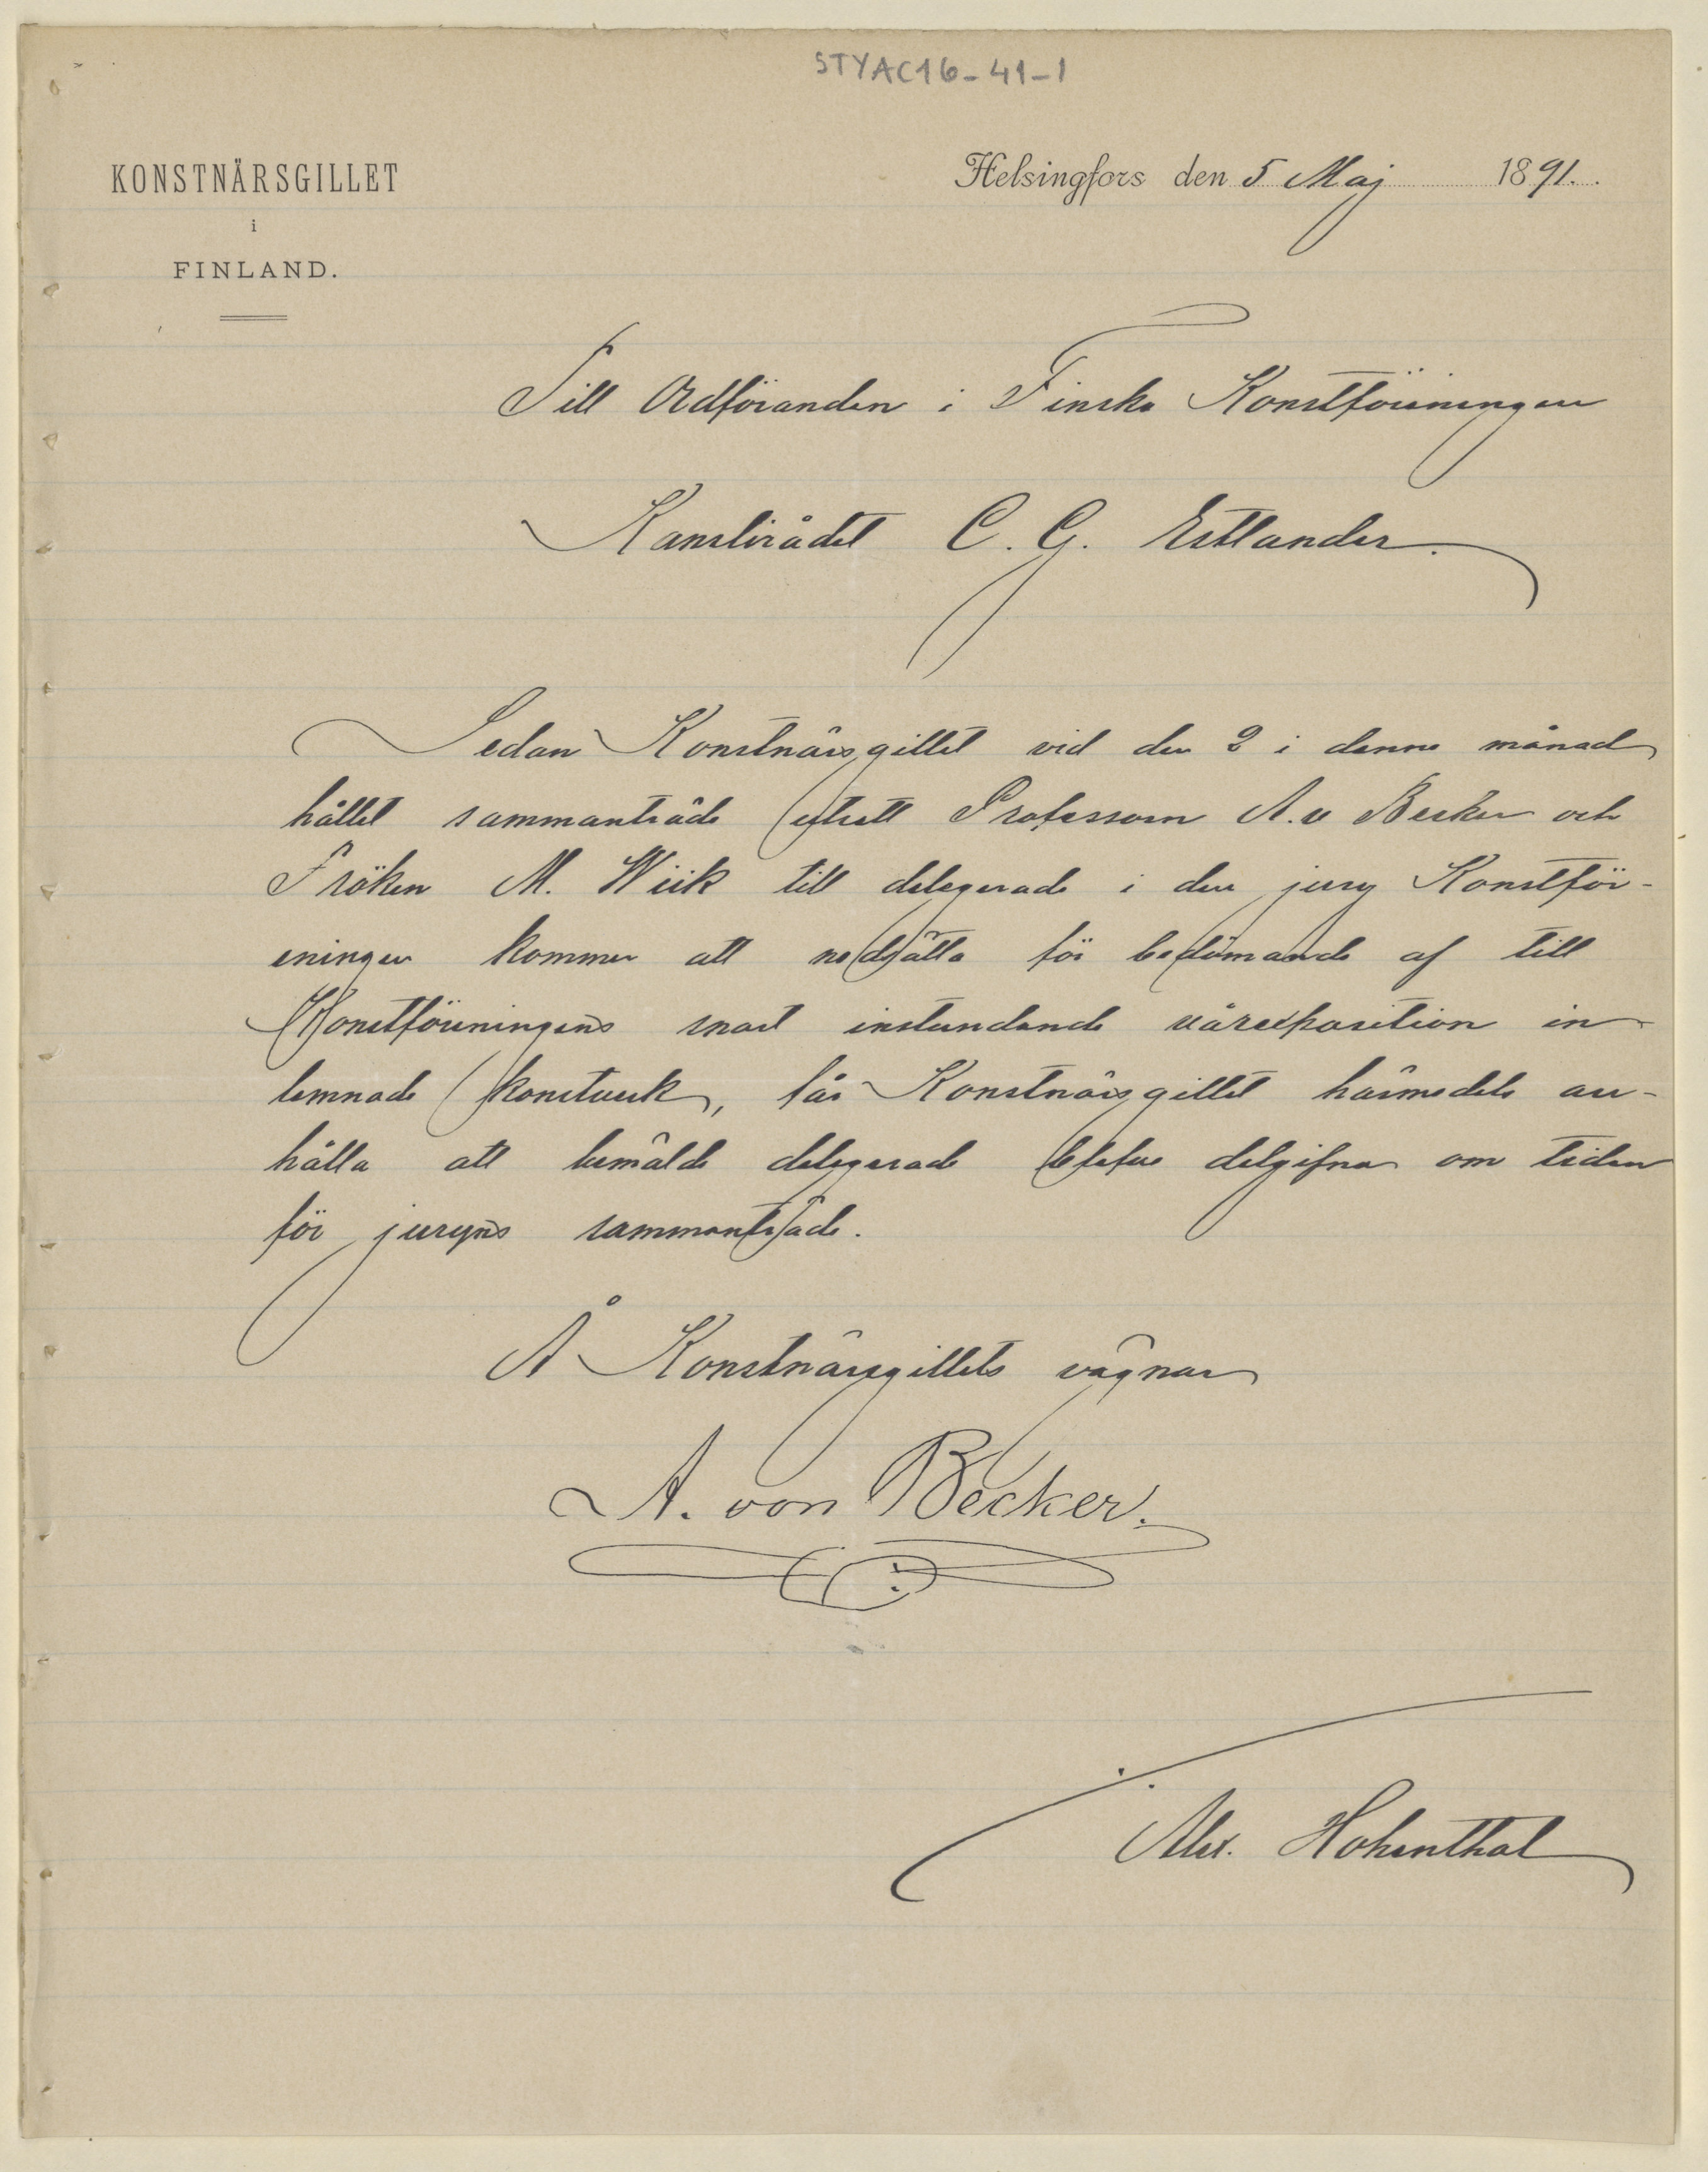 STYAC16-41-1
KONSTNÄRSGILLET
i
FINLAND.
Helsingfors den 5 Maj 1891.
Till Ordföranden i Finska Konstföreningen
Kanslirådet C. G. Estlander.
Sedan Konstnärsgillet vid den 2 i denna månad
hållet sammanträde utsett Professorn A. v Becker och
Fröken M. Wiik till delegerade i den jury Konstför-
eningen kommer att nedsätta för bedömande af till
Konstföreningens snart instundande vårexposition in
lemnade konstverk, får Konstnärsgillet härmedels an-
hålla att bemälde delegerade blefve delgifna om tiden
för juryns sammanträde.
Å Konstnärsgillets vägnar
A. von Becker.
Alex. Hohenthal